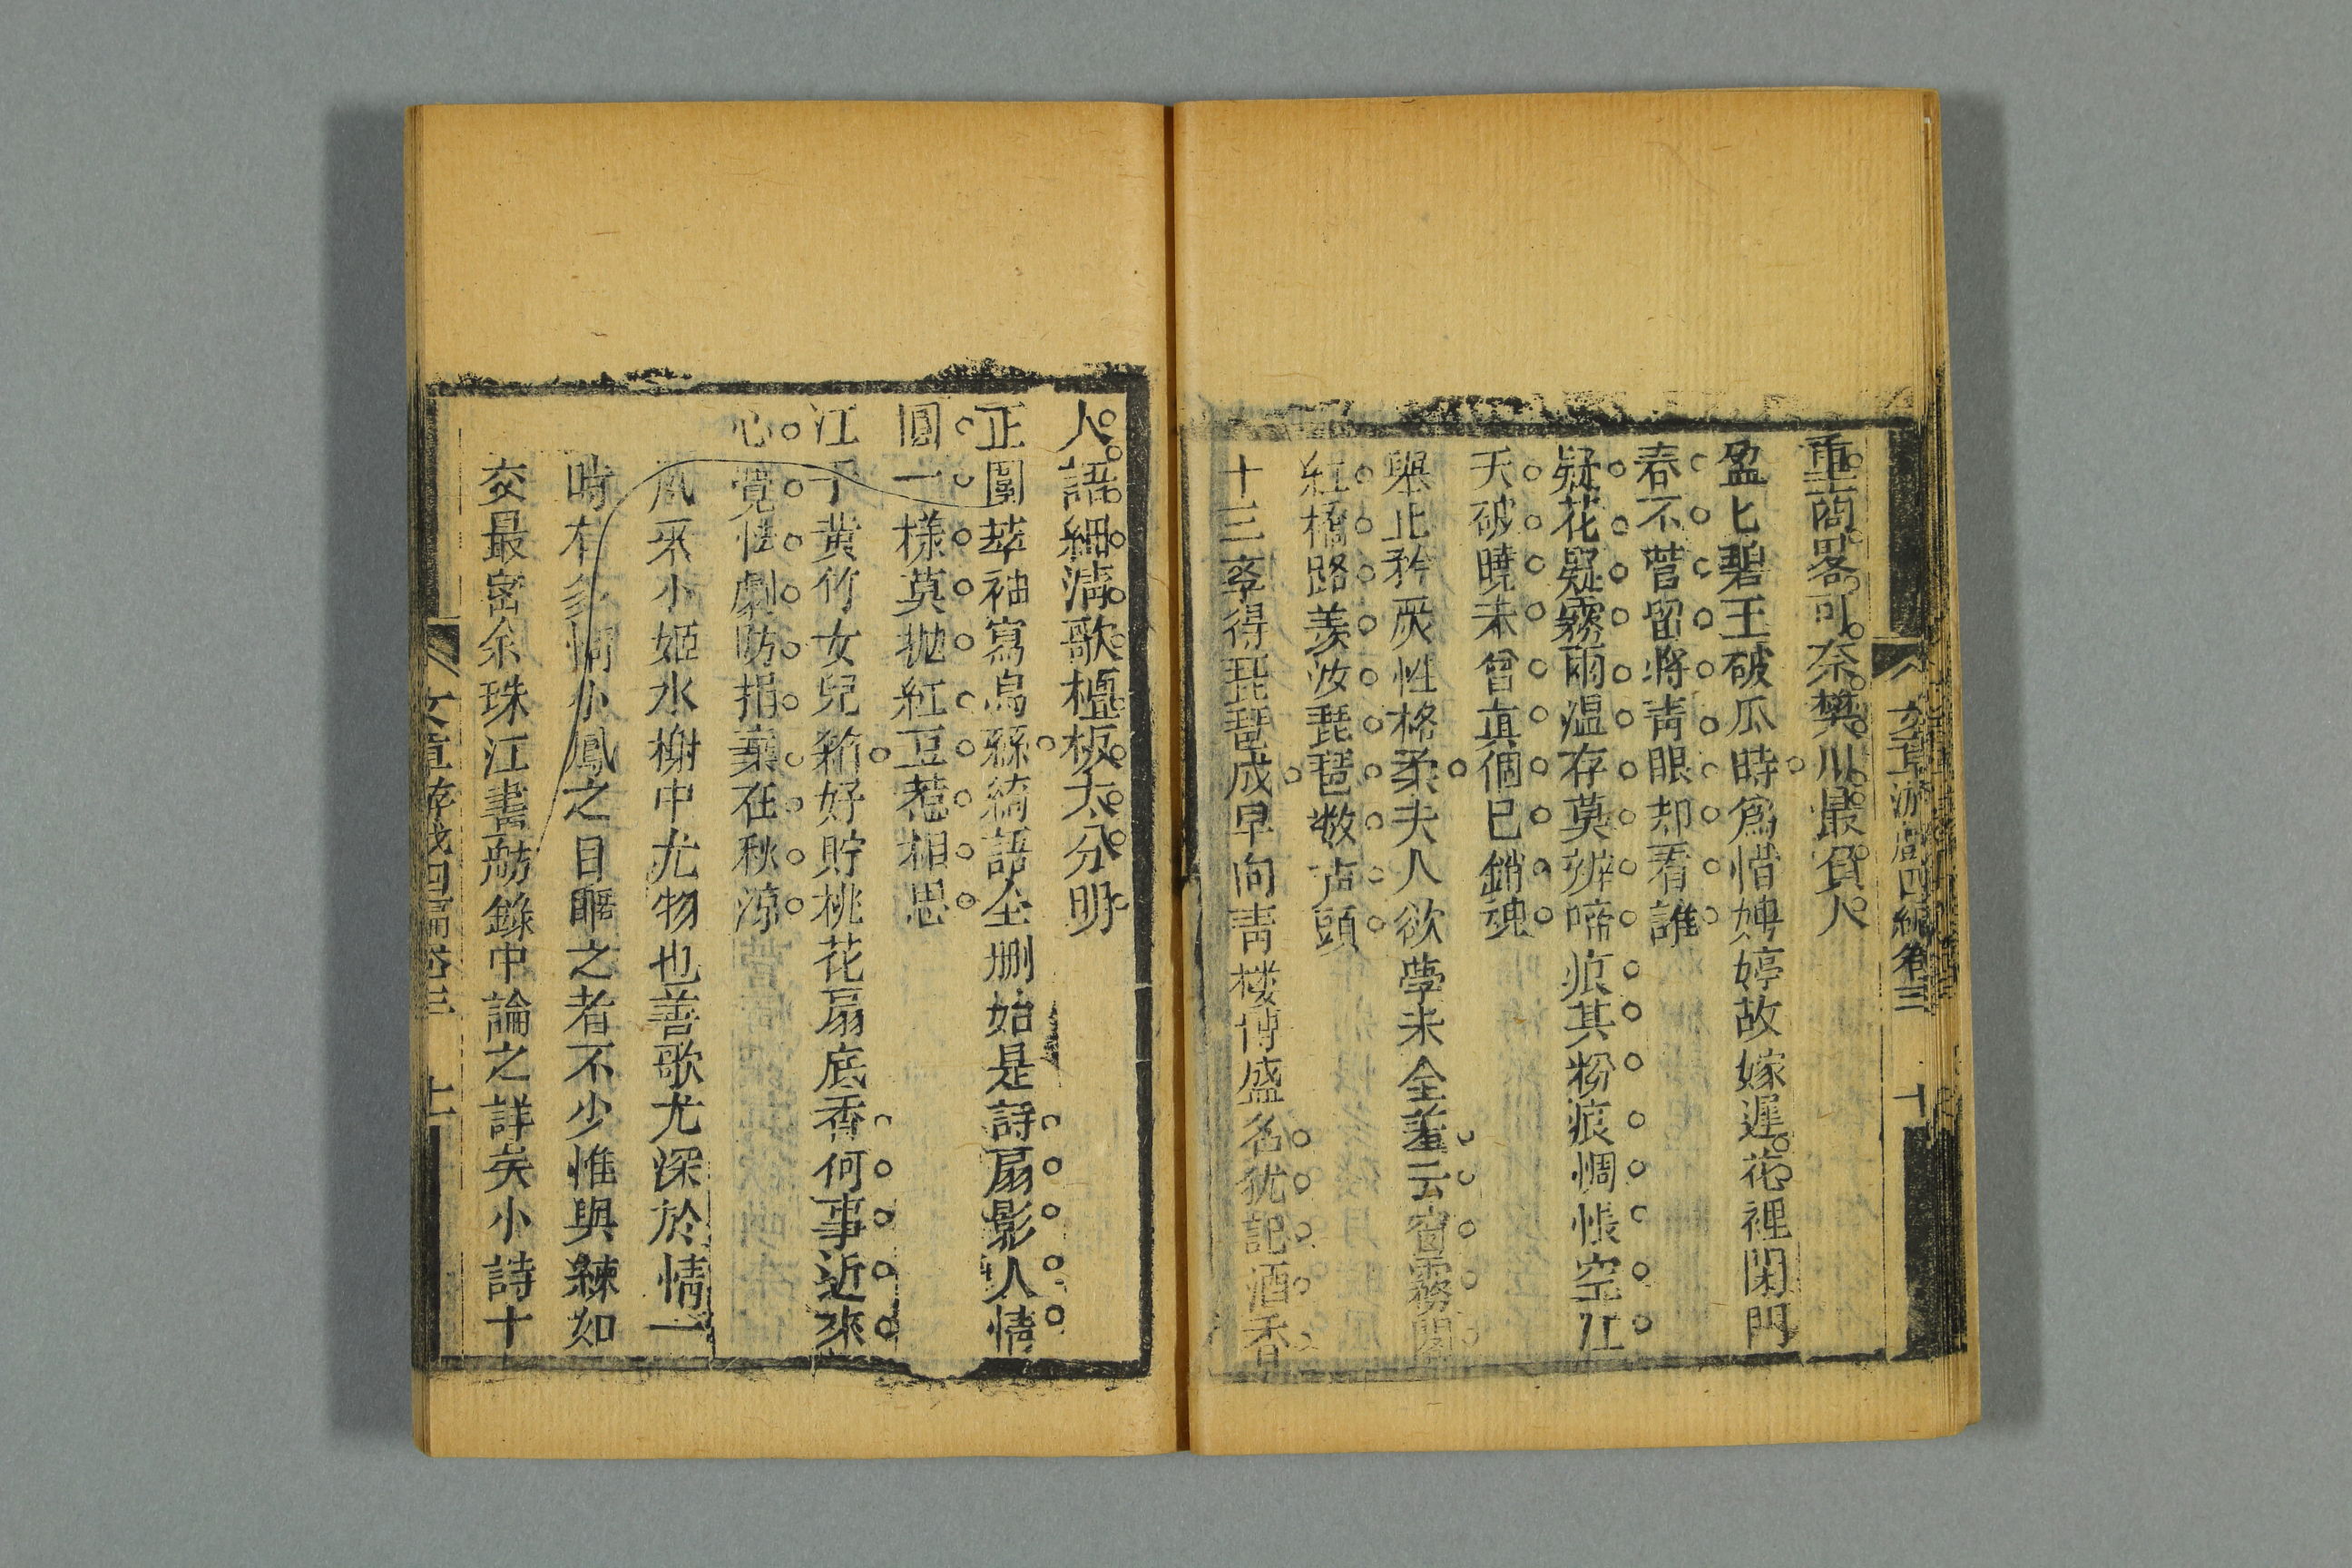 文章游戲四編卷三 十
重商畧可奈樊川最負人
盈匕碧玉破瓜時爲惜娉婷故嫁遲花裡閑門
春不管留將靑眼却看誰
疑花疑霧雨温存莫辨啼痕其粉痕惆悵空江
天破曉未曾眞個已銷魂
舉止矜嚴性格柔夫人欲學未全羞云窗霧閣
紅橋路羨汝琵琶數声頭
十三率得琵琶成早向靑楼博盛名犹記酒香
人語細淸歌檀板太分明
正圍翠袖寫烏絲綺語仝删始是詩扇影人情
圓一樣莫抛紅豆惹相思
江干黄竹女兒箱好貯桃花扇底香何事近來
心覺怯劇防捐棄在秋凉
凤釆小姬水榭中尤物也善歌尤深於情一
時有多情小鳳之目暱之者不少惟與練如
交最密余珠江書舫錄中論之詳矣小詩十
文章游戲四編卷三 十一